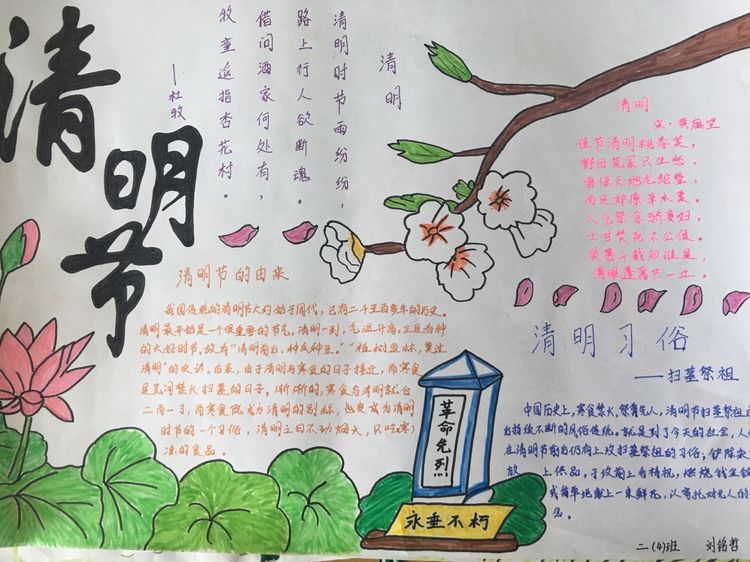 清明节
清明
清明时节雨纷纷，
路上行人欲断魂。
借问酒家何处有，
牧童遥指杏花村。
—杜牧
清明
宋·黄庭坚
佳节清明桃李笑，
野田荒冢只生愁。
雷惊天地龙蛇蛰，
雨足郊原草木柔。
人乞祭余骄妾妇，
士甘焚死不公侯。
贤愚千载知谁是，
满眼蓬蒿共一丘。
清明节的由来
我国传统的清明节大约始于周代，已有二千五百多年的历史。
清明最开始是一个很重要的节气，清明一到，气温升高，正是春种
的大好时节，故有“清明前后，种瓜种豆。”“植树造林，莫过
清明”的农谚。后来，由于清明与寒食的日子接近，而寒食
是民间禁火扫墓的日子，渐渐的，寒食与清明就合
二为一了，而寒食既成为清明的别称，也变成为清明
时节的一个习俗，清明之日不动烟火，只吃凉
的食品。
清明习俗
——扫墓祭祖
中国历史上，寒食禁火，祭奠先人，清明节扫墓祭祖
持续不断的风俗传统。就是到了今天的社会，人
在清明节前后仍有上坟扫墓祭祖的习俗：铲除杂
放 上供品，于坟前上香祷祝，燃烧纸
或简单地献上一束鲜花，以寄托对先人的
念。
革命先烈
永垂不朽
二(4)班 刘铭哲